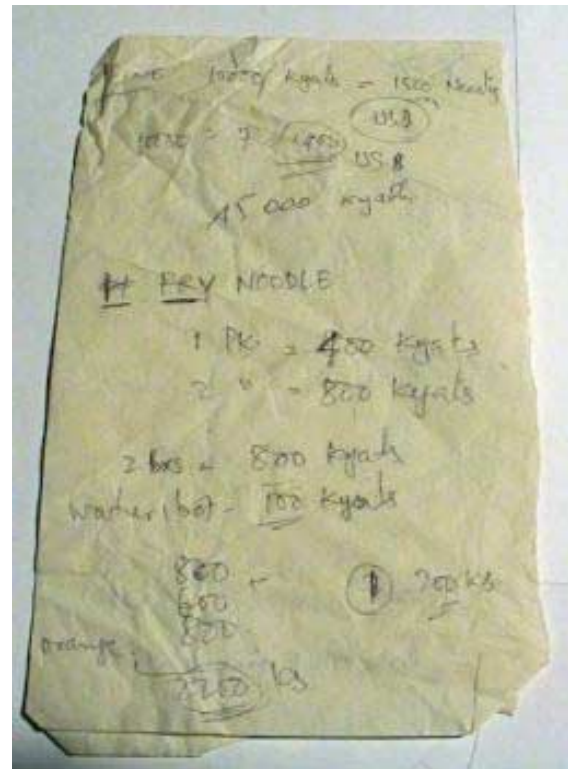 10000 Kyats = 1500
US$
= 7 1400 US $
15000 Kyats
FRY NOODLE
1 PK = 400 Kyats
2 " = 800 Kyats
2 bxs = 800 Kyats
water 1 bot - 100 Kyats
800
600
1 700 ks
800
orange
2200 ks